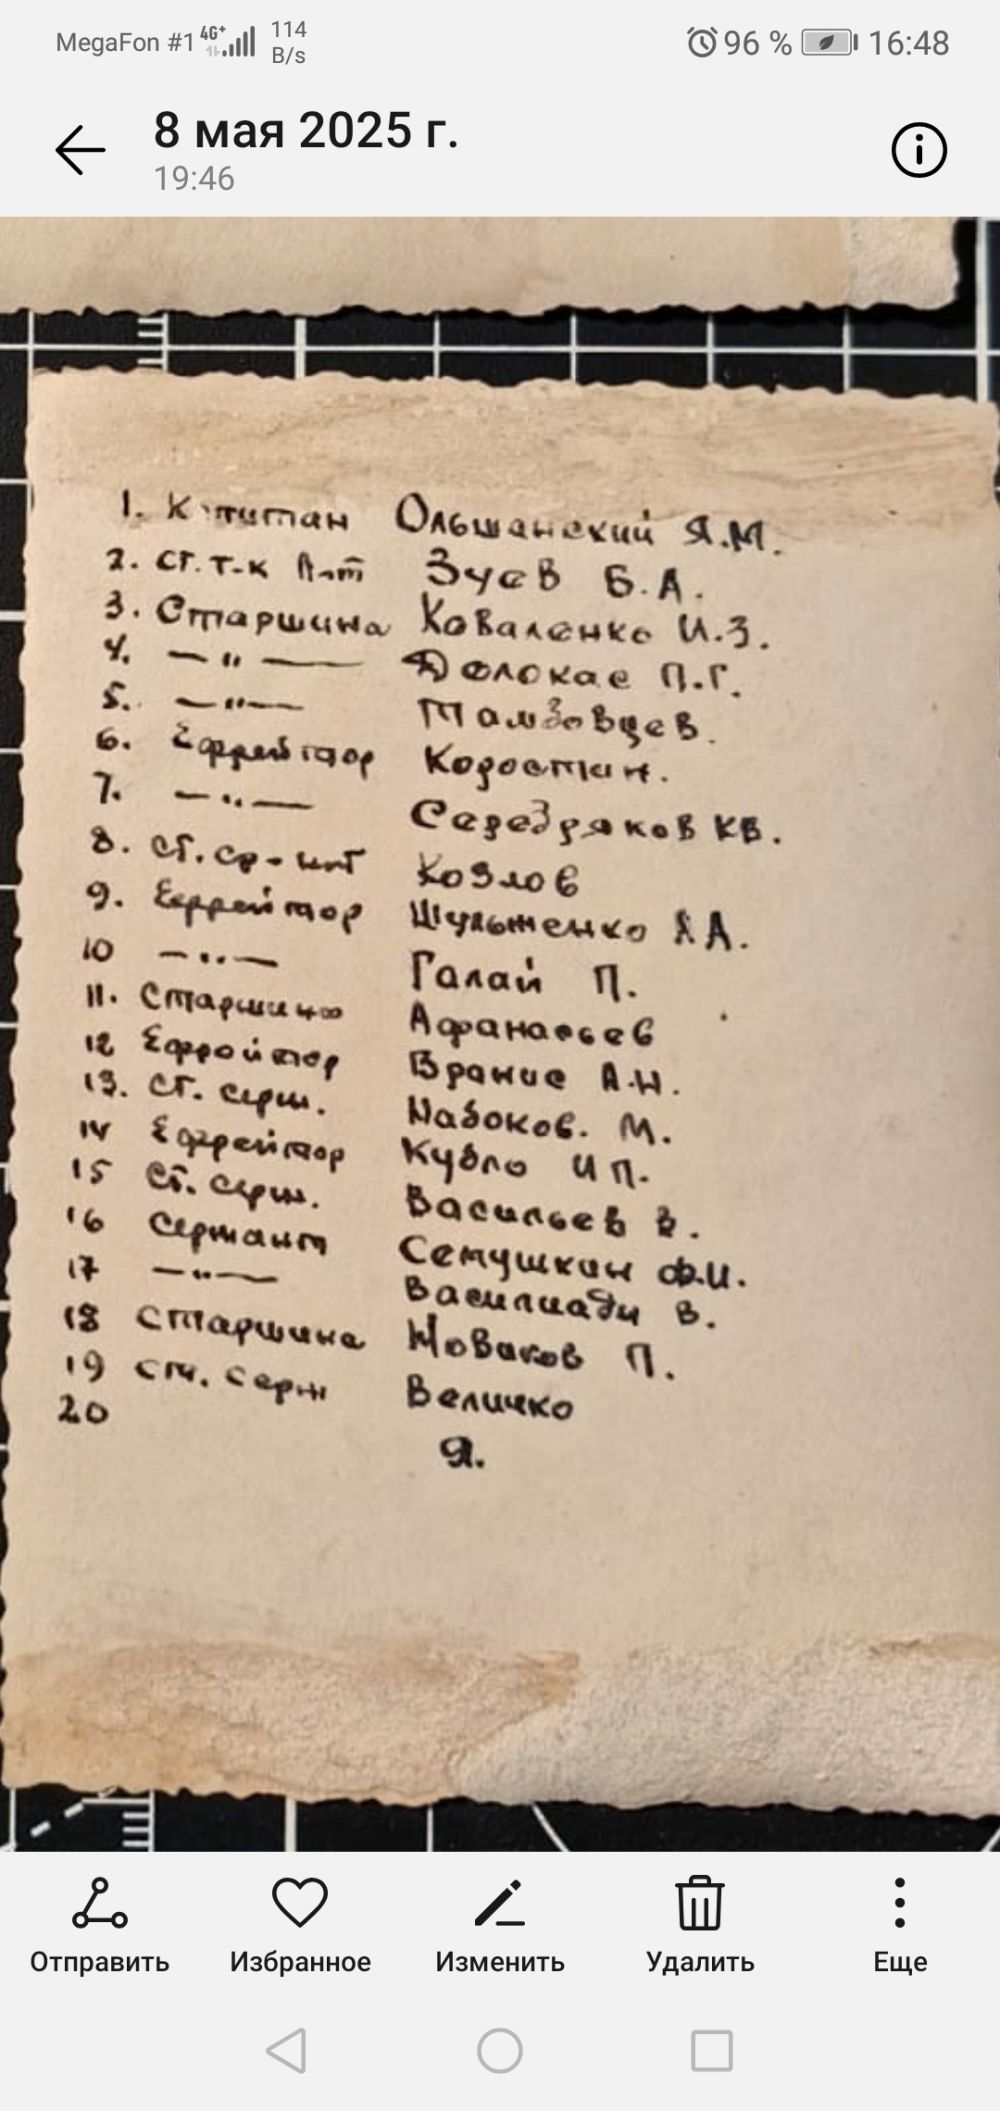 MegaFon #1 4G+ 114 B/s 96 % 16:48
8 мая 2025 г.
19:46
1. Капитан Ольшанский Я.М.
2. ст. т-к Зуев Б.А.
3. Старшина Коваленко И.З.
4. —"— Долокае П.Г.
5. —"— Тамбовцев.
6. Ефрейтор Коростин.
7. —"— Серебряков КВ.
8. Ст. Козлов
9. Ефрейтор Шульженко А А.
10 —"— Галай П.
11. Старшина Афанасьев
12 Ефрейтор Врание А.Н.
13. Ст. серж. Набоков. М.
14 Ефрейтор Кубло И П.
15 Ст. серж. Васильев В.
16 Сержант Семушкин Ф.И.
17 —"— Василиади В.
18 Старшина Новаков П.
19 ст. серж Величко
20 Я.
Отправить Избранное Изменить Удалить Еще